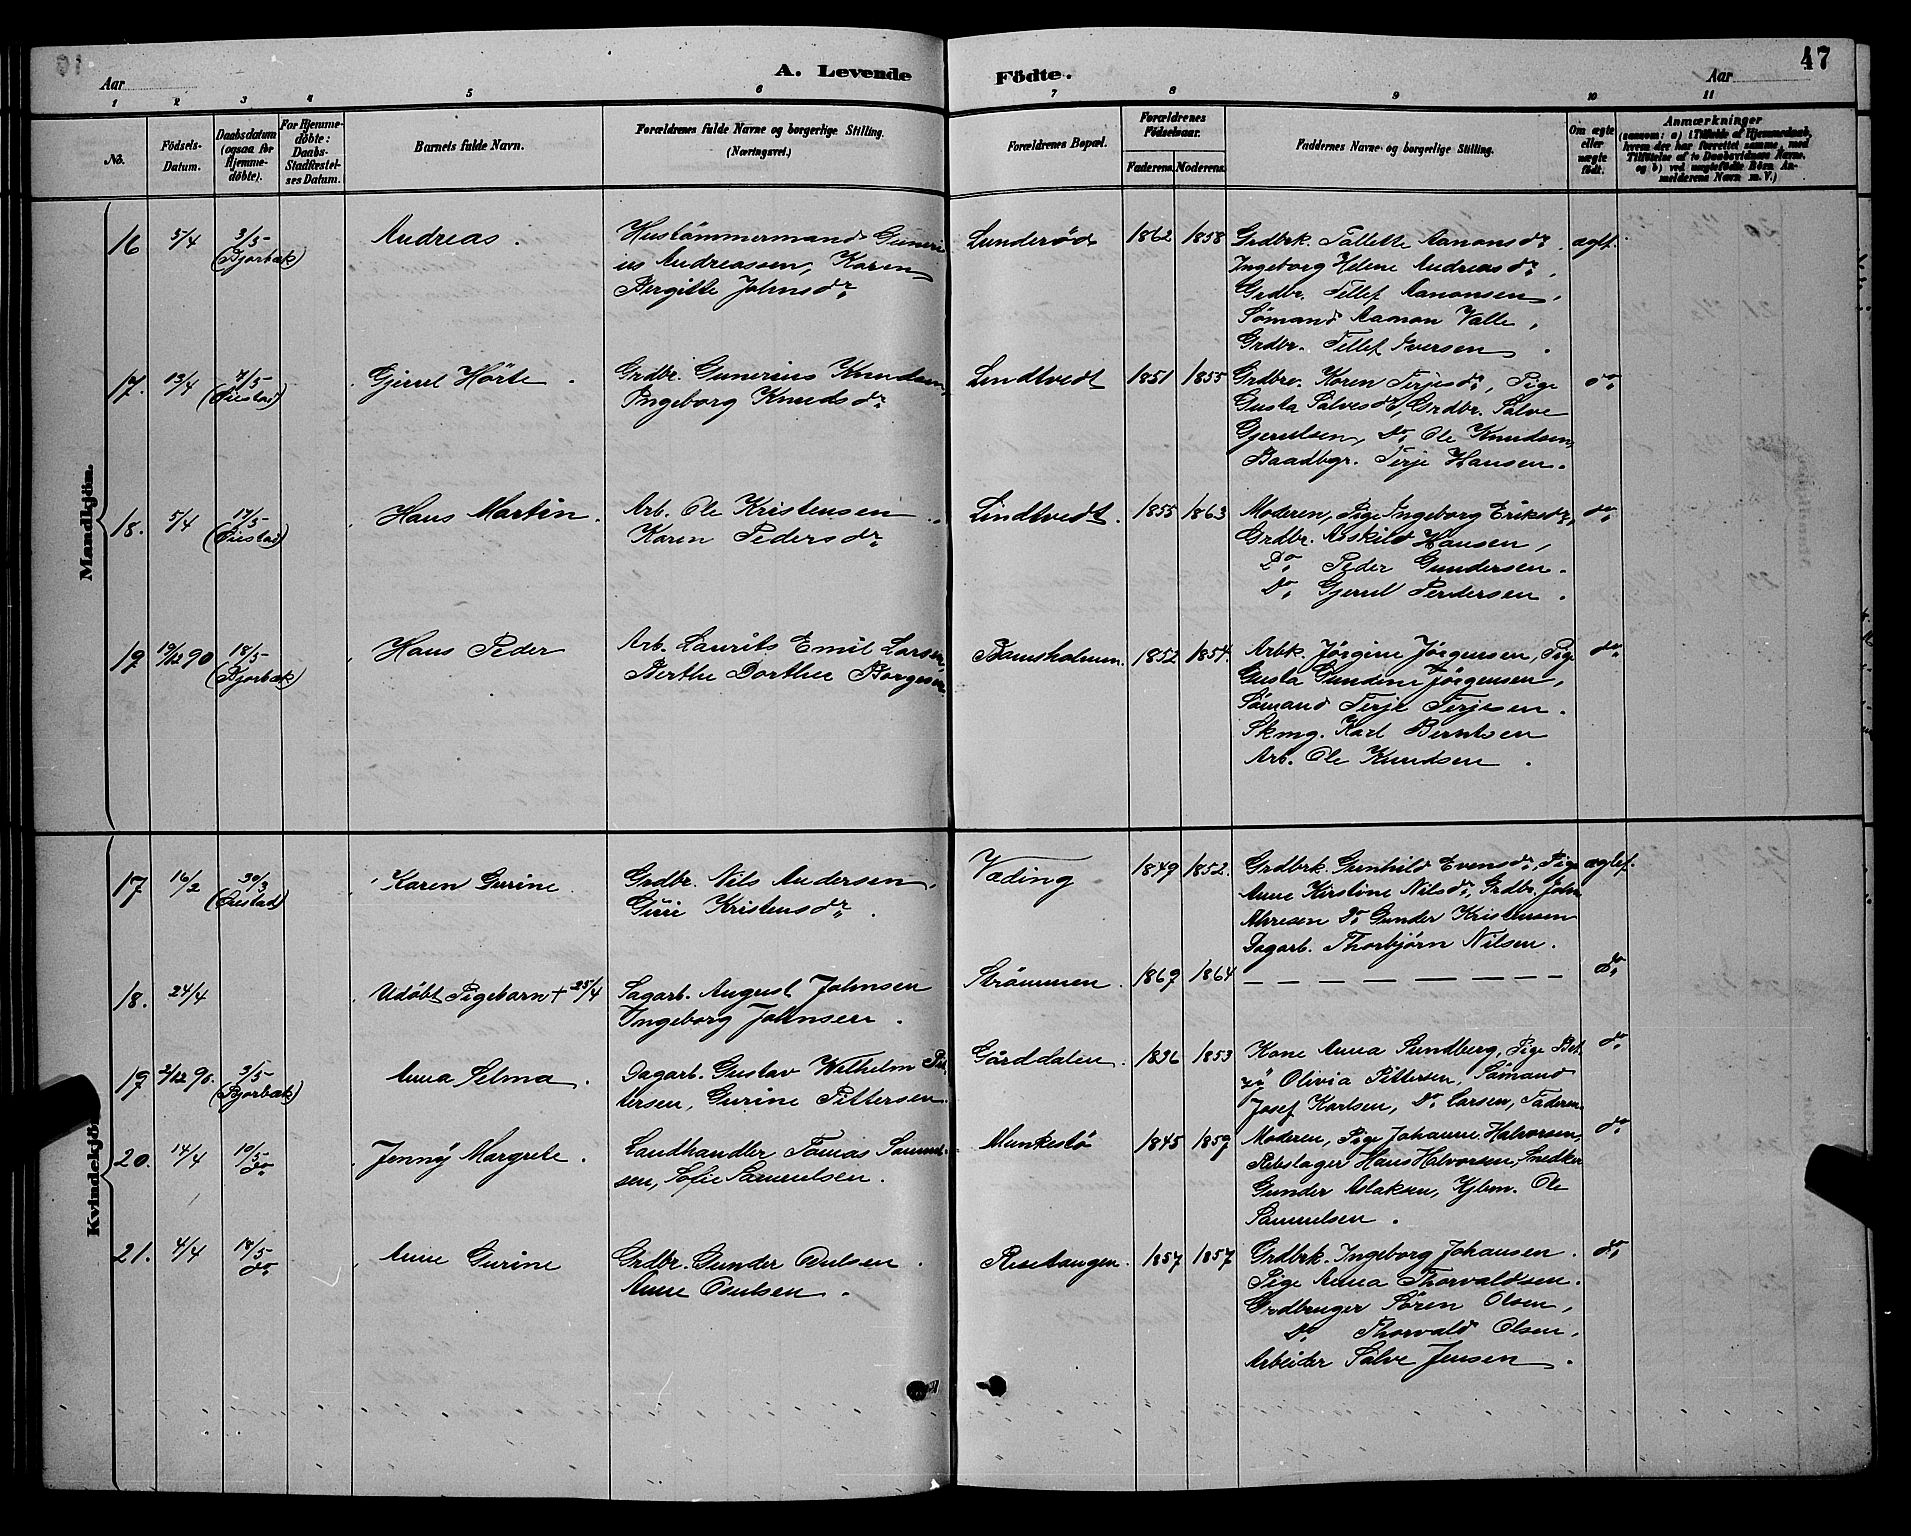 47
Aar
A. Levende
Födte.
Aar
1 2 3 4 5 6 7 8 9 10 11
No.
Födsels-
Datum.
Daabsdatum
(ogsaa for
Hjemme-
döbte).
For Hjemme-
döbte:
Daabs-
Stadfæstel-
ses Datum.
Barnets fulde Navn.
Forældrenes fulde Navne og borgerlige Stilling.
(Næringsvei.)
Forældrenes Bopæl.
Forældrenes
Födselsaar.
Faderens.
Moderens.
Faddernes Navne og borgerlige Stilling.
Om ægte
eller
uægte
født.
Anmærkninger
(saasom: a) i Tilfælde af Hjemmedaab,
hvem der har forrettet samme, med
Tilföielse af to Daabsvidners Navne,
og b) ved uægtefödte Börn An-
melderens Navn m. V.)
Mandkjön.
16 5/4 3/5 (Bjorbæk) Andreas. Hustömmermand Guneri
us Andreassen, Karen
Bergitte Johnsdr.
Lunderöd 1862 1858 Grdbrk. Tallette Aanonsdr. ægtf.
Ingeborg Helene Andreasdr.
Grdbr. Tellef Aanonsen,
Sömand Aanon Valle,
Grdbr. Tellef Iversen.
17. 13/4 7/5 (Öiestad) Gjerul Hörte. Grdbr. Gunerius Knudsen,
Ingeborg Knudsdr.
Lindtvedt 1851 1855 Grdbre. Karen Terjesdr, Pige do.
Gusta Salvesdr, Grdbr. Salve
Gjerulsen, Do. Ole Knudsen,
Baadbgr. Terje Hansen.
18. 5/4 17/5 (Öiestad) Hans Martin. Arb. Ole Kristensen
Karen Pedersdr.
Lindtvedt. 1855 1863 Moderen, Pige Ingeborg Eriksdr, do.
Grdbr. Askild Hansen,
Do. Peder Gundersen.
Do. Gjerul Pedersen.
19 19/12 90 18/5 (Bjorbæk) Hans Peder Arb. Laurits Emil Larsen,
Berthe Dorthee Borgesen
1852 1854. Arbk. Jörgine Jörgensen, Pige do.
Gusta Gundine Jörgensen,
Sömand Terje Terjesen.
Skmg. Karl Berntsen
Arb. Ole Knudsen.
Kvindekjön
17 16/2 30/3 (Öiestad) Karen Gurine. Grdbr. Nils Andersen,
Guri Kristensdr.
Væding 1849 1852. Grdbrk. Gunhild Evensdr, Pige ægtef.
Anne Kirstine Nilsdr. Grdbr. John
Do. Gunder Kristensen
Dagarb. Thorbjörn Nilsen.
18. 24/4 Udöbt Pigebarn + 25/4 Sagarb. August Johnsen
Ingeborg Johnsen.
Strömmen. 1869 1864 — — — — — — — — do.
19 2/12 90. 3/5 (Bjorbæk) Anna Selma. Dagarb. Gustav Wilhelm Pit
tersen, Gurine Pittersen.
Gårddalen. 1836 1853 Kone Anna Sundberg, Pige Bet do.
zy Olivia Pittersen, Sömand
Josef Karlsen, Do. Larsen, Faderen.
20. 14/4 10/5 do. Jenny Margrete. Landhandler Tomas Samuel-
sen, Sofie Samuelsen.
Munkestö 1845 1859 Moderen, Pige Johanne Halvorsen, do
Rebslager Hans Halvorsen, Snedker
Gunder Aslaksen, Kjbm. Ole
Samuelsen.
21. 4/4 18/5 do. Anne Gurine Grdbr. Gunder Oulsen.
Anne Oulsen.
Resetangen. 1857 1857 Grdbrk. Ingeborg Johansen. do.
Pige Anna Thorvaldsen.
Grdbruger Sören Olsen,
Do. Thorvald Olsen,
Arbeider Salve Jensen.